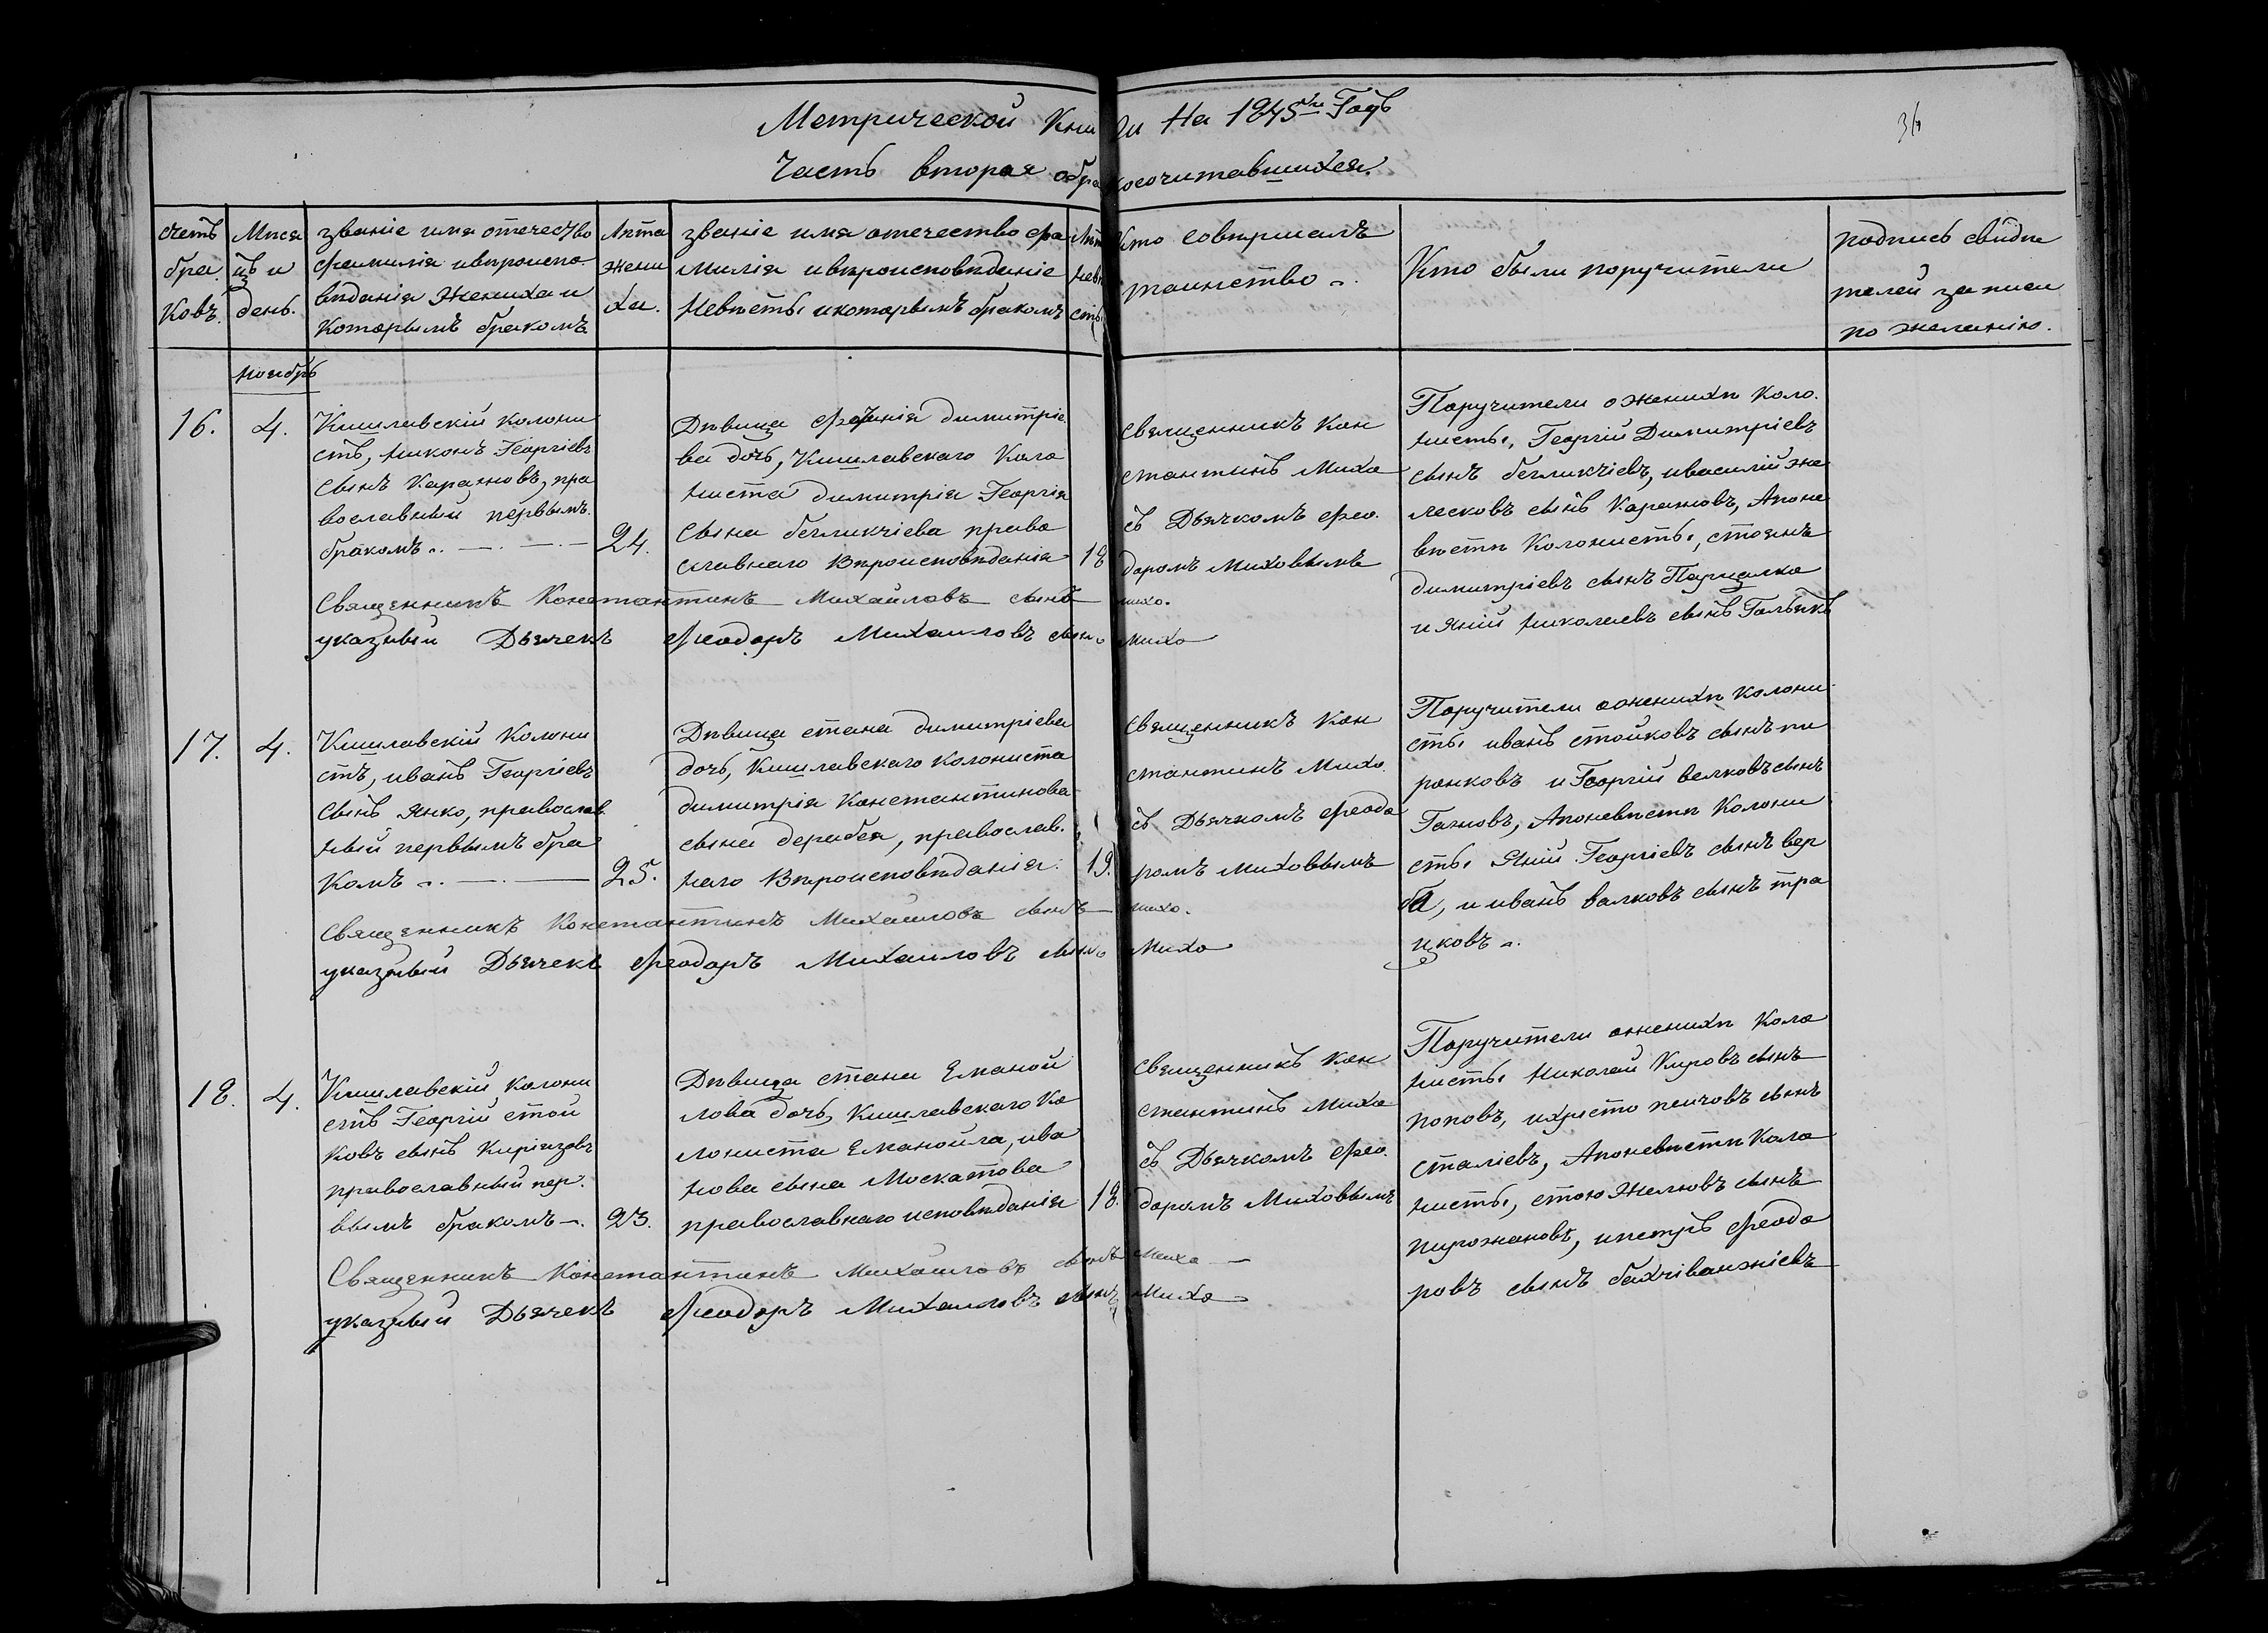 Метрической Книги На 1845й Годъ
34
Часть вторая обракосочитавшихся.
счетъ браковъ.
Мѣсяцъ и день.
званіе имя отечество
фамилія ивѣроиспо-
вѣданія Жениха и
которымъ бракомъ
Лѣта жениха.
званіе имя отечество фа
милія ивѣроисповѣданіе
Невѣсты икоторымъ бракомъ
Лѣт невѣсты
Кто совѣршалъ
таинство
Кто были поручители
подпись свидѣ
телей записи
по желанію.
Ноябрь
16.
4.
Кишлавскій колони
стъ, Никонъ Георгіевъ
сынъ Каражновъ, пра
вославный первымъ
бракомъ
24.
Дѣвица Фотинія димитріе
ва дочь, Кишлавскаго Коло
ниста димитрія Георгія
сына бегликчіева право
славнаго Вѣроисповѣданія
18
священникъ Кон
стантинъ Михо
съ Дьячкомъ Фео.
доромъ Миховымъ
Поручители о женихѣ Коло.
нисты, Георгій Димитріевъ
сынъ бегликчіевъ, ивасилій же
лесковъ сынъ Каражновъ, Апоне
вѣстѣ Колонисты, стоянъ
димитріевъ сынъ Паришлко
и Яній николаевъ сынъ Гольбикъ
Священникъ Константинъ Михайловъ сынъ Михо.
указный Дьячекъ Феодоръ Михаиловъ сынъ Михо
17.
4.
Кишлавскій Колони
стъ, иванъ Георгіевъ
сынъ Янко, православ
ный первымъ бра
комъ
25.
Дѣвица стана димитріева
дочь, Кишлавскаго колониста
димитрія Константинова
сына дерибея, православ.
наго Вѣроисповѣданія.
19.
священникъ Кон
стантинъ Михо.
съ Дьячкомъ Феодо
ромъ Миховымъ
Поручители оженихѣ Колони
сты иванъ стойковъ сынъ пи
ронковъ и Георгій велковъ сынъ
Гачновъ, Апоневѣстѣ Колони
сты Яній Георгіевъ сынъ вер
ба, и иванъ валковъ сынъ тра
цковъ
священникъ Константинъ Михайловъ сынъ Михо.
указный Дьячекъ Феодоръ Михаиловъ сынъ Михо
18.
4.
Кишлавскій Колони
стъ Георгій стой
ковъ сынъ Киріязовъ
православный пер.
вымъ бракомъ
23.
Дѣвица стана Еманой
лова дочь, Кишлавскаго Ко
лониста Еманойла, ива
нова сына Москатова
православнаго исповѣданія
18.
священникъ Кон
стантинъ Михо
съ Дьячкомъ Фео.
доромъ Миховымъ
Поручители оженихѣ Коло
нисты Николай Кировъ сынъ
поповъ, ихристо пенчовъ сынъ
сталіевъ, Апоневѣстѣ Коло
нисты, стою Желювъ сынъ
пирожановъ, ипетръ Феодо
ровъ сынъ бахчіванжіевъ
Священникъ Константинъ Михайловъ сынъ Михо
указный Дьячекъ Феодоръ Михаиловъ сынъ Михо